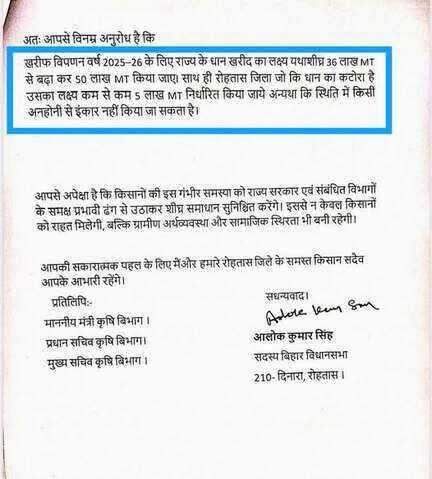 अतः आपसे विनम्र अनुरोध है कि
खरीफ विपणन वर्ष 2025–26 के लिए राज्य के धान खरीद का लक्ष्य यथाशीघ्र 36 लाख MT
से बढ़ा कर 50 लाख MT किया जाए। साथ ही रोहतास जिला जो कि धान का कटोरा है
उसका लक्ष्य कम से कम 5 लाख MT निर्धारित किया जाये अन्यथा कि स्थिति में किसी
अनहोनी से इंकार नहीं किया जा सकता है।
आपसे अपेक्षा है कि किसानों की इस गंभीर समस्या को राज्य सरकार एवं संबंधित विभागों
के समक्ष प्रभावी ढंग से उठाकर शीघ्र समाधान सुनिश्चित करेंगे। इससे न केवल किसानों
को राहत मिलेगी, बल्कि ग्रामीण अर्थव्यवस्था और सामाजिक स्थिरता भी बनी रहेगी।
आपकी सकारात्मक पहल के लिए मैंऔर हमारे रोहतास जिले के समस्त किसान सदैव
आपके आभारी रहेंगे।
प्रतिलिपि:-
माननीय मंत्री कृषि बिभाग ।
प्रधान सचिव कृषि बिभाग।
मुख्य सचिव कृषि बिभाग ।
सधन्यवाद।
आलोक कुमार सिंह
सदस्य बिहार विधानसभा
210- दिनारा, रोहतास ।